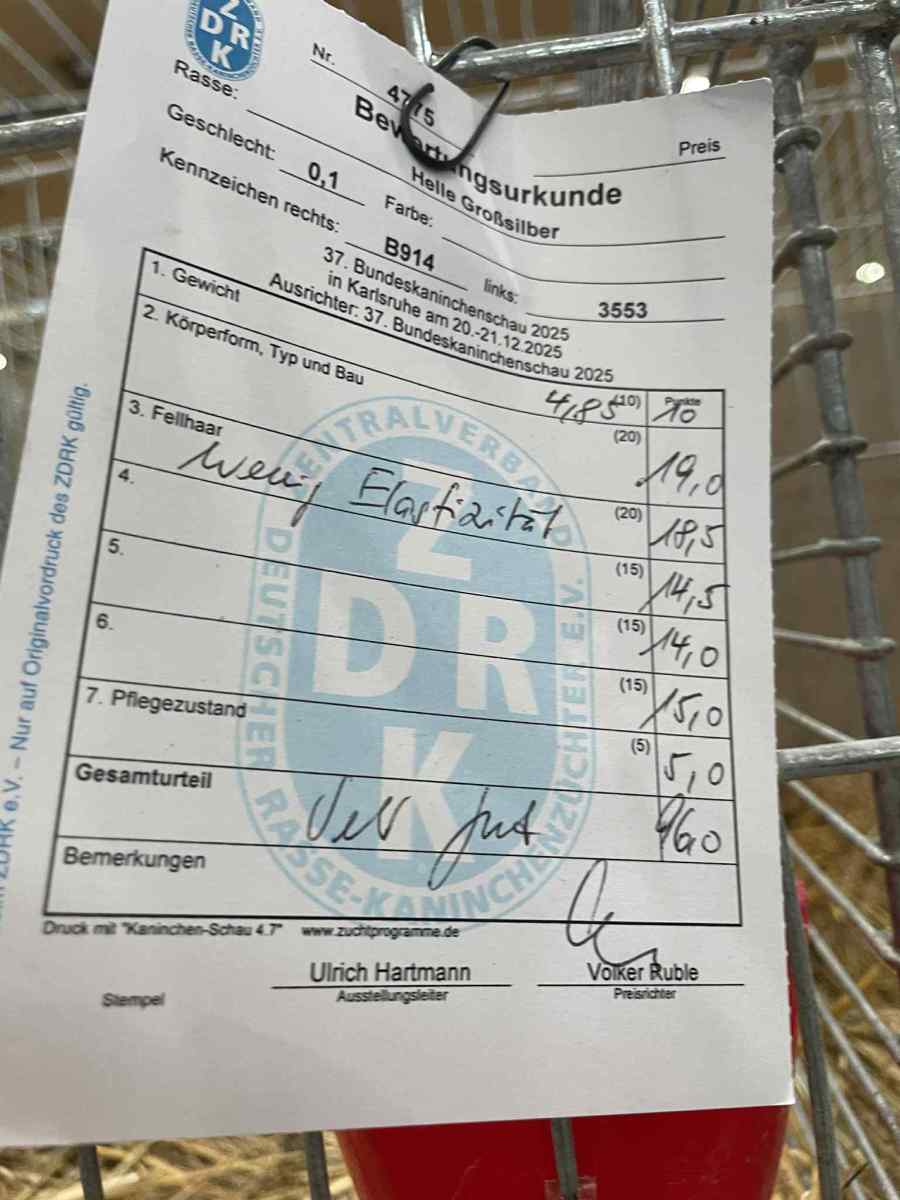 ZDRK
Nr. 4775
Bewertungsurkunde
Preis
Rasse: Helle Großsilber
Geschlecht: 0,1 Farbe:
Kennzeichen rechts: B914 links: 3553
37. Bundeskaninchenschau 2025
in Karlsruhe am 20.-21.12.2025
Ausrichter: 37. Bundeskaninchenschau 2025
Punkte
1. Gewicht 4,85 (10) 10
2. Körperform, Typ und Bau (20) 19,0
3. Fellhaar (20) 18,5
wenig Elastizität
4. (15) 14,5
5. (15) 14,0
6. (15) 15,0
7. Pflegezustand (5) 5,0
Gesamturteil sehr gut 96,0
Bemerkungen
ZENTRALVERBAND DEUTSCHER RASSE-KANINCHENZÜCHTER E.V.
ZDRK
Druck mit "Kaninchen-Schau 4.7" www.zuchtprogramme.de
Stempel
Ulrich Hartmann
Ausstellungsleiter
Volker Ruble
Preisrichter
ZDRK e.V. – Nur auf Originalvordruck des ZDRK gültig.